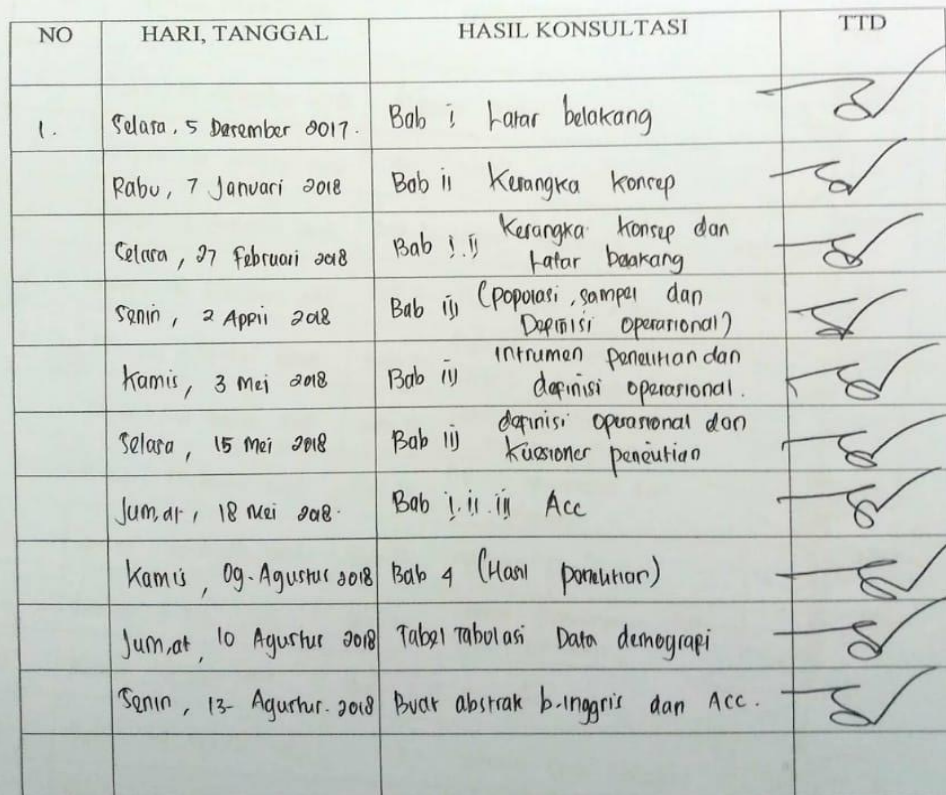 NO HARI, TANGGAL HASIL KONSULTASI TTD
1. Selasa, 5 Desember 2017. Bab i Latar belakang
Rabu, 7 Januari 2018 Bab ii Kerangka konsep
Selasa, 27 Februari 2018 Bab i.ii Kerangka Konsep dan
Latar beakang
Senin, 2 Appii 2018 Bab iii (popolasi, sampel dan
Depinisi operasional)
Kamis, 3 Mei 2018 Bab iii Intrumen penelitian dan
depinisi operasional.
Selasa, 15 Mei 2018 Bab iii depinisi operasional dan
Kuesioner penelitian
Jum,at, 18 Mei 2018. Bab i.ii.iii Acc
Kamis, 09-Agustus 2018 Bab 4 (Hasil penelitian)
Jum,at, 10 Agustus 2018 Tabel Tabolasi Data demograpi
Senin, 13- Agustus. 2018 Buat abstrak b.inggris dan Acc.